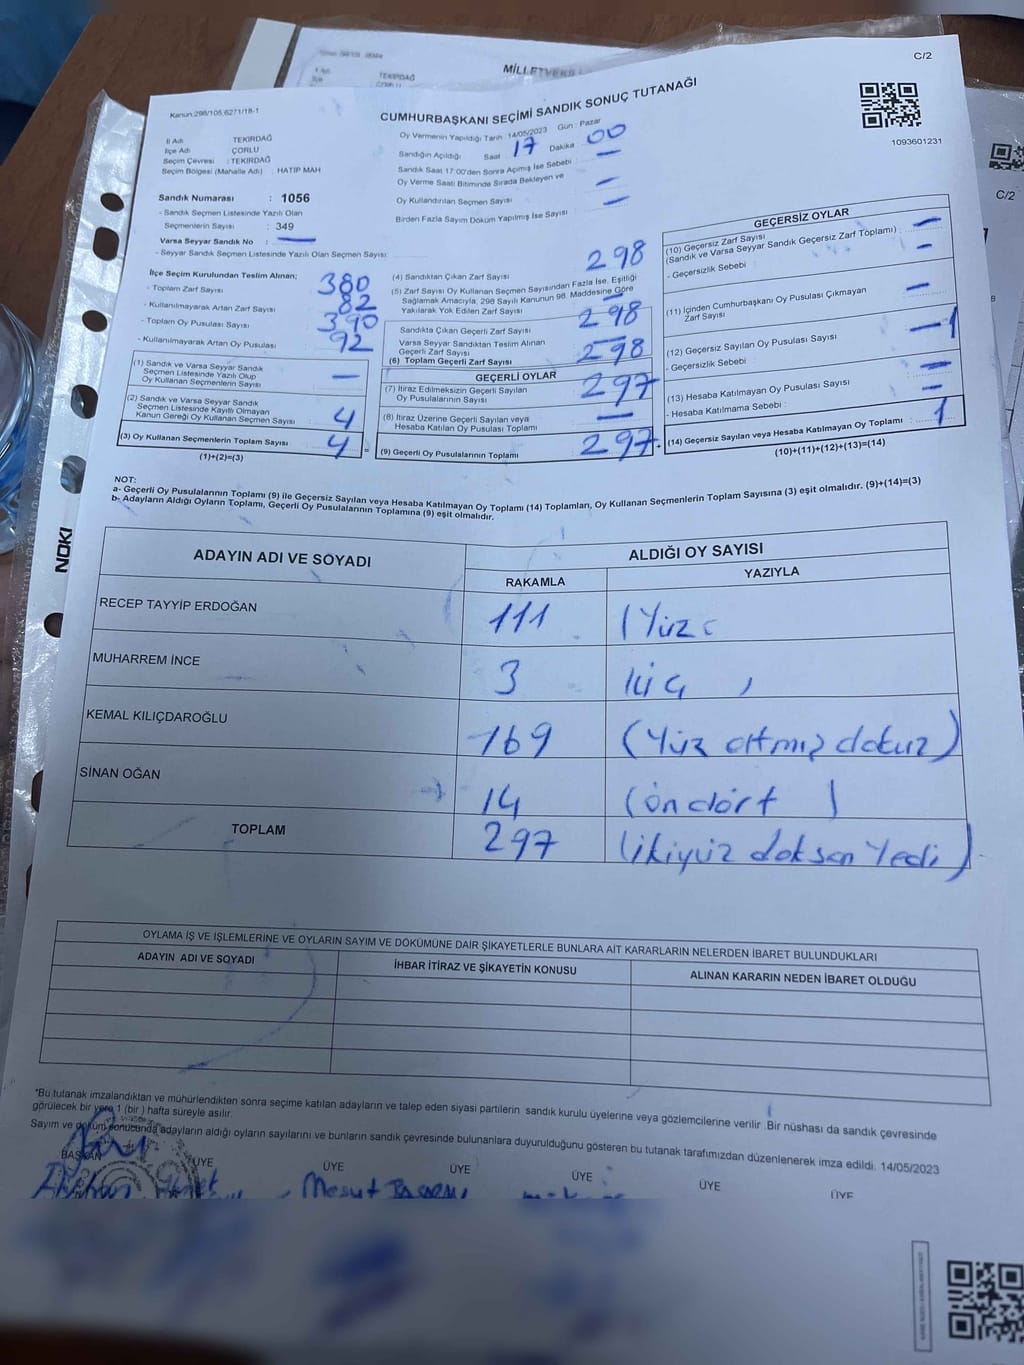 MİLLETVEKİ
TEKİRDAĞ
C/2
Kanun:298/105,6271/18-1
CUMHURBAŞKANI SEÇİMİ SANDIK SONUÇ TUTANAĞI
1093601231
C/2
İl Adı TEKİRDAĞ
İlçe Adı ÇORLU
Seçim Çevresi : TEKİRDAĞ
Seçim Bölgesi (Mahalle Adı) : HATİP MAH
Sandık Numarası : 1056
- Sandık Seçmen Listesinde Yazılı Olan
Seçmenlerin Sayısı : 349
Varsa Seyyar Sandık No : —
- Seyyar Sandık Seçmen Listesinde Yazılı Olan Seçmen Sayısı:
Oy Vermenin Yapıldığı Tarih : 14/05/2023 Gün : Pazar
Sandığın Açıldığı Saat 17 Dakika 00
Sandık Saat 17:00'den Sonra Açımış İse Sebebi : —
Oy Verme Saati Bitiminde Sırada Bekleyen ve
Oy Kullandırılan Seçmen Sayısı —
Birden Fazla Sayım Döküm Yapılmış İse Sayısı —
İlçe Seçim Kurulundan Teslim Alınan;
- Toplam Zarf Sayısı 380
- Kullanılmayarak Artan Zarf Sayısı 82
- Toplam Oy Pusulası Sayısı 390
- Kullanılmayarak Artan Oy Pusulası 92
(1) Sandık ve Varsa Seyyar Sandık
Seçmen Listesinde Yazılı Olup
Oy Kullanan Seçmenlerin Sayısı —
(2) Sandık ve Varsa Seyyar Sandık
Seçmen Listesinde Kayıtlı Olmayan
Kanun Gereği Oy Kullanan Seçmen Sayısı 4
(3) Oy Kullanan Seçmenlerin Toplam Sayısı 4
(1)+(2)=(3)
(4) Sandıktan Çıkan Zarf Sayısı 298
(5) Zarf Sayısı Oy Kullanan Seçmen Sayısından Fazla İse, Eşitliği
Sağlamak Amacıyla; 298 Sayılı Kanunun 98. Maddesine Göre
Yakılarak Yok Edilen Zarf Sayısı —
Sandıkta Çıkan Geçerli Zarf Sayısı 298
Varsa Seyyar Sandıktan Teslim Alınan
Geçerli Zarf Sayısı —
(6) Toplam Geçerli Zarf Sayısı 298
GEÇERLİ OYLAR
(7) İtiraz Edilmeksizin Geçerli Sayılan
Oy Pusulalarının Sayısı 297
(8) İtiraz Üzerine Geçerli Sayılan veya
Hesaba Katılan Oy Pusulası Toplamı —
(9) Geçerli Oy Pusulalarının Toplamı 297
GEÇERSİZ OYLAR
(10) Geçersiz Zarf Sayısı —
(Sandık ve Varsa Seyyar Sandık Geçersiz Zarf Toplamı) :
- Geçersizlik Sebebi : —
(11) İçinden Cumhurbaşkanı Oy Pusulası Çıkmayan
Zarf Sayısı —
(12) Geçersiz Sayılan Oy Pusulası Sayısı —1
- Geçersizlik Sebebi : —
(13) Hesaba Katılmayan Oy Pusulası Sayısı —
- Hesaba Katılmama Sebebi :
(14) Geçersiz Sayılan veya Hesaba Katılmayan Oy Toplamı : 1
(10)+(11)+(12)+(13)=(14)
NOT:
a- Geçerli Oy Pusulalarının Toplamı (9) ile Geçersiz Sayılan veya Hesaba Katılmayan Oy Toplamı (14) Toplamları, Oy Kullanan Seçmenlerin Toplam Sayısına (3) eşit olmalıdır. (9)+(14)=(3)
b- Adayların Aldığı Oyların Toplamı, Geçerli Oy Pusulalarının Toplamına (9) eşit olmalıdır.
NOKI
ADAYIN ADI VE SOYADI
ALDIĞI OY SAYISI
RAKAMLA YAZIYLA
RECEP TAYYİP ERDOĞAN 111 (Yüz
MUHARREM İNCE 3
KEMAL KILIÇDAROĞLU 169 (Yüz altmış dokuz)
SİNAN OĞAN 14 (ondört )
TOPLAM 297 (ikiyüz doksan Yedi)
OYLAMA İŞ VE İŞLEMLERİNE VE OYLARIN SAYIM VE DÖKÜMÜNE DAİR ŞİKAYETLERLE BUNLARA AİT KARARLARIN NELERDEN İBARET BULUNDUKLARI
ADAYIN ADI VE SOYADI İHBAR İTİRAZ VE ŞİKAYETİN KONUSU ALINAN KARARIN NEDEN İBARET OLDUĞU
*Bu tutanak imzalandıktan ve mühürlendikten sonra seçime katılan adayların ve talep eden siyasi partilerin sandık kurulu üyelerine veya gözlemcilerine verilir. Bir nüshası da sandık çevresinde
görülecek bir yere 1 (bir) hafta süreyle asılır.
Sayım ve döküm sonucunda adayların aldığı oyların sayılarını ve bunların sandık çevresinde bulunanlara duyurulduğunu gösteren bu tutanak tarafımızdan düzenlenerek imza edildi. 14/05/2023
BAŞKAN ÜYE ÜYE ÜYE ÜYE ÜYE ÜYE
Mesut